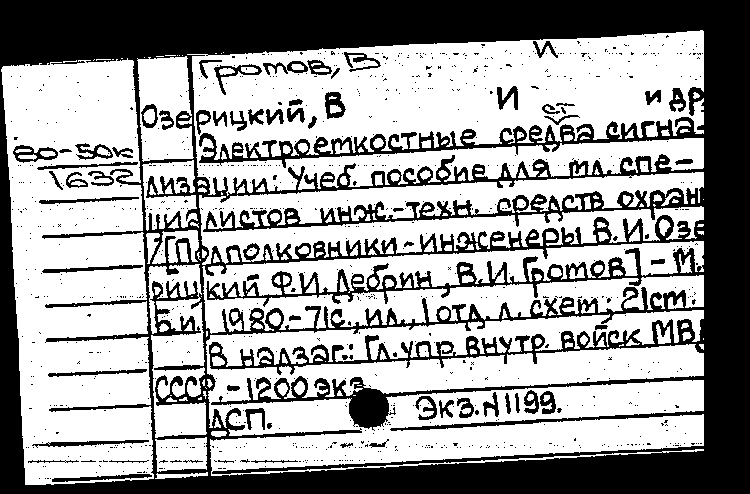 Громов, В И
Озерицкий, В И и др
Электроемкостные средства сигна-
80-50к
1632
лизации: Учеб. пособие для мл. спе-
циалистов инж.-техн. средств охран
/[Подполковники-инженеры В.И. Озе
рицкий, Ф.И. Дебрин, В.И. Громов] - М.:
Б.и., 1980.-71с., ил., 1 отд. л. схем; 21см.
В надзаг.: Гл. упр. внутр. войск МВД
СССР.-1200 экз
ДСП. Экз. N 1199.